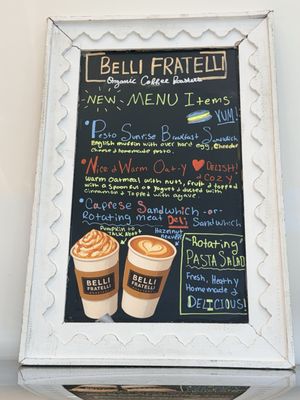 BELLI FRATELLI
Organic Coffee Roasters
NEW MENU Items
YUM!
• Pesto Sunrise Breakfast Sandwich
English muffin with over hard egg, Cheedar
Cheese & homemade pesto.
• Nice & Warm Oat-y DELISH!
& COZY
Warm Oatmeal with nuts, fruit & topped
with a spoonful of Yogurt & dusted with
Cinnamon & Topped with agave
• Caprese Sandwhich -or-
Rotating meat Deli Sandwhich
Pumpkin to
TALK About
Hazelnut
BELLI
FRATELLI
BELLI
FRATELLI
Rotating
PASTA SALAD
Fresh, Healthy
Homemade &
DELICIOUS!